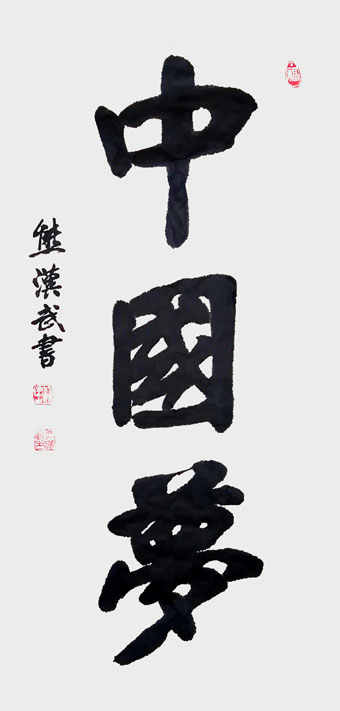 中國夢
熊漢武書